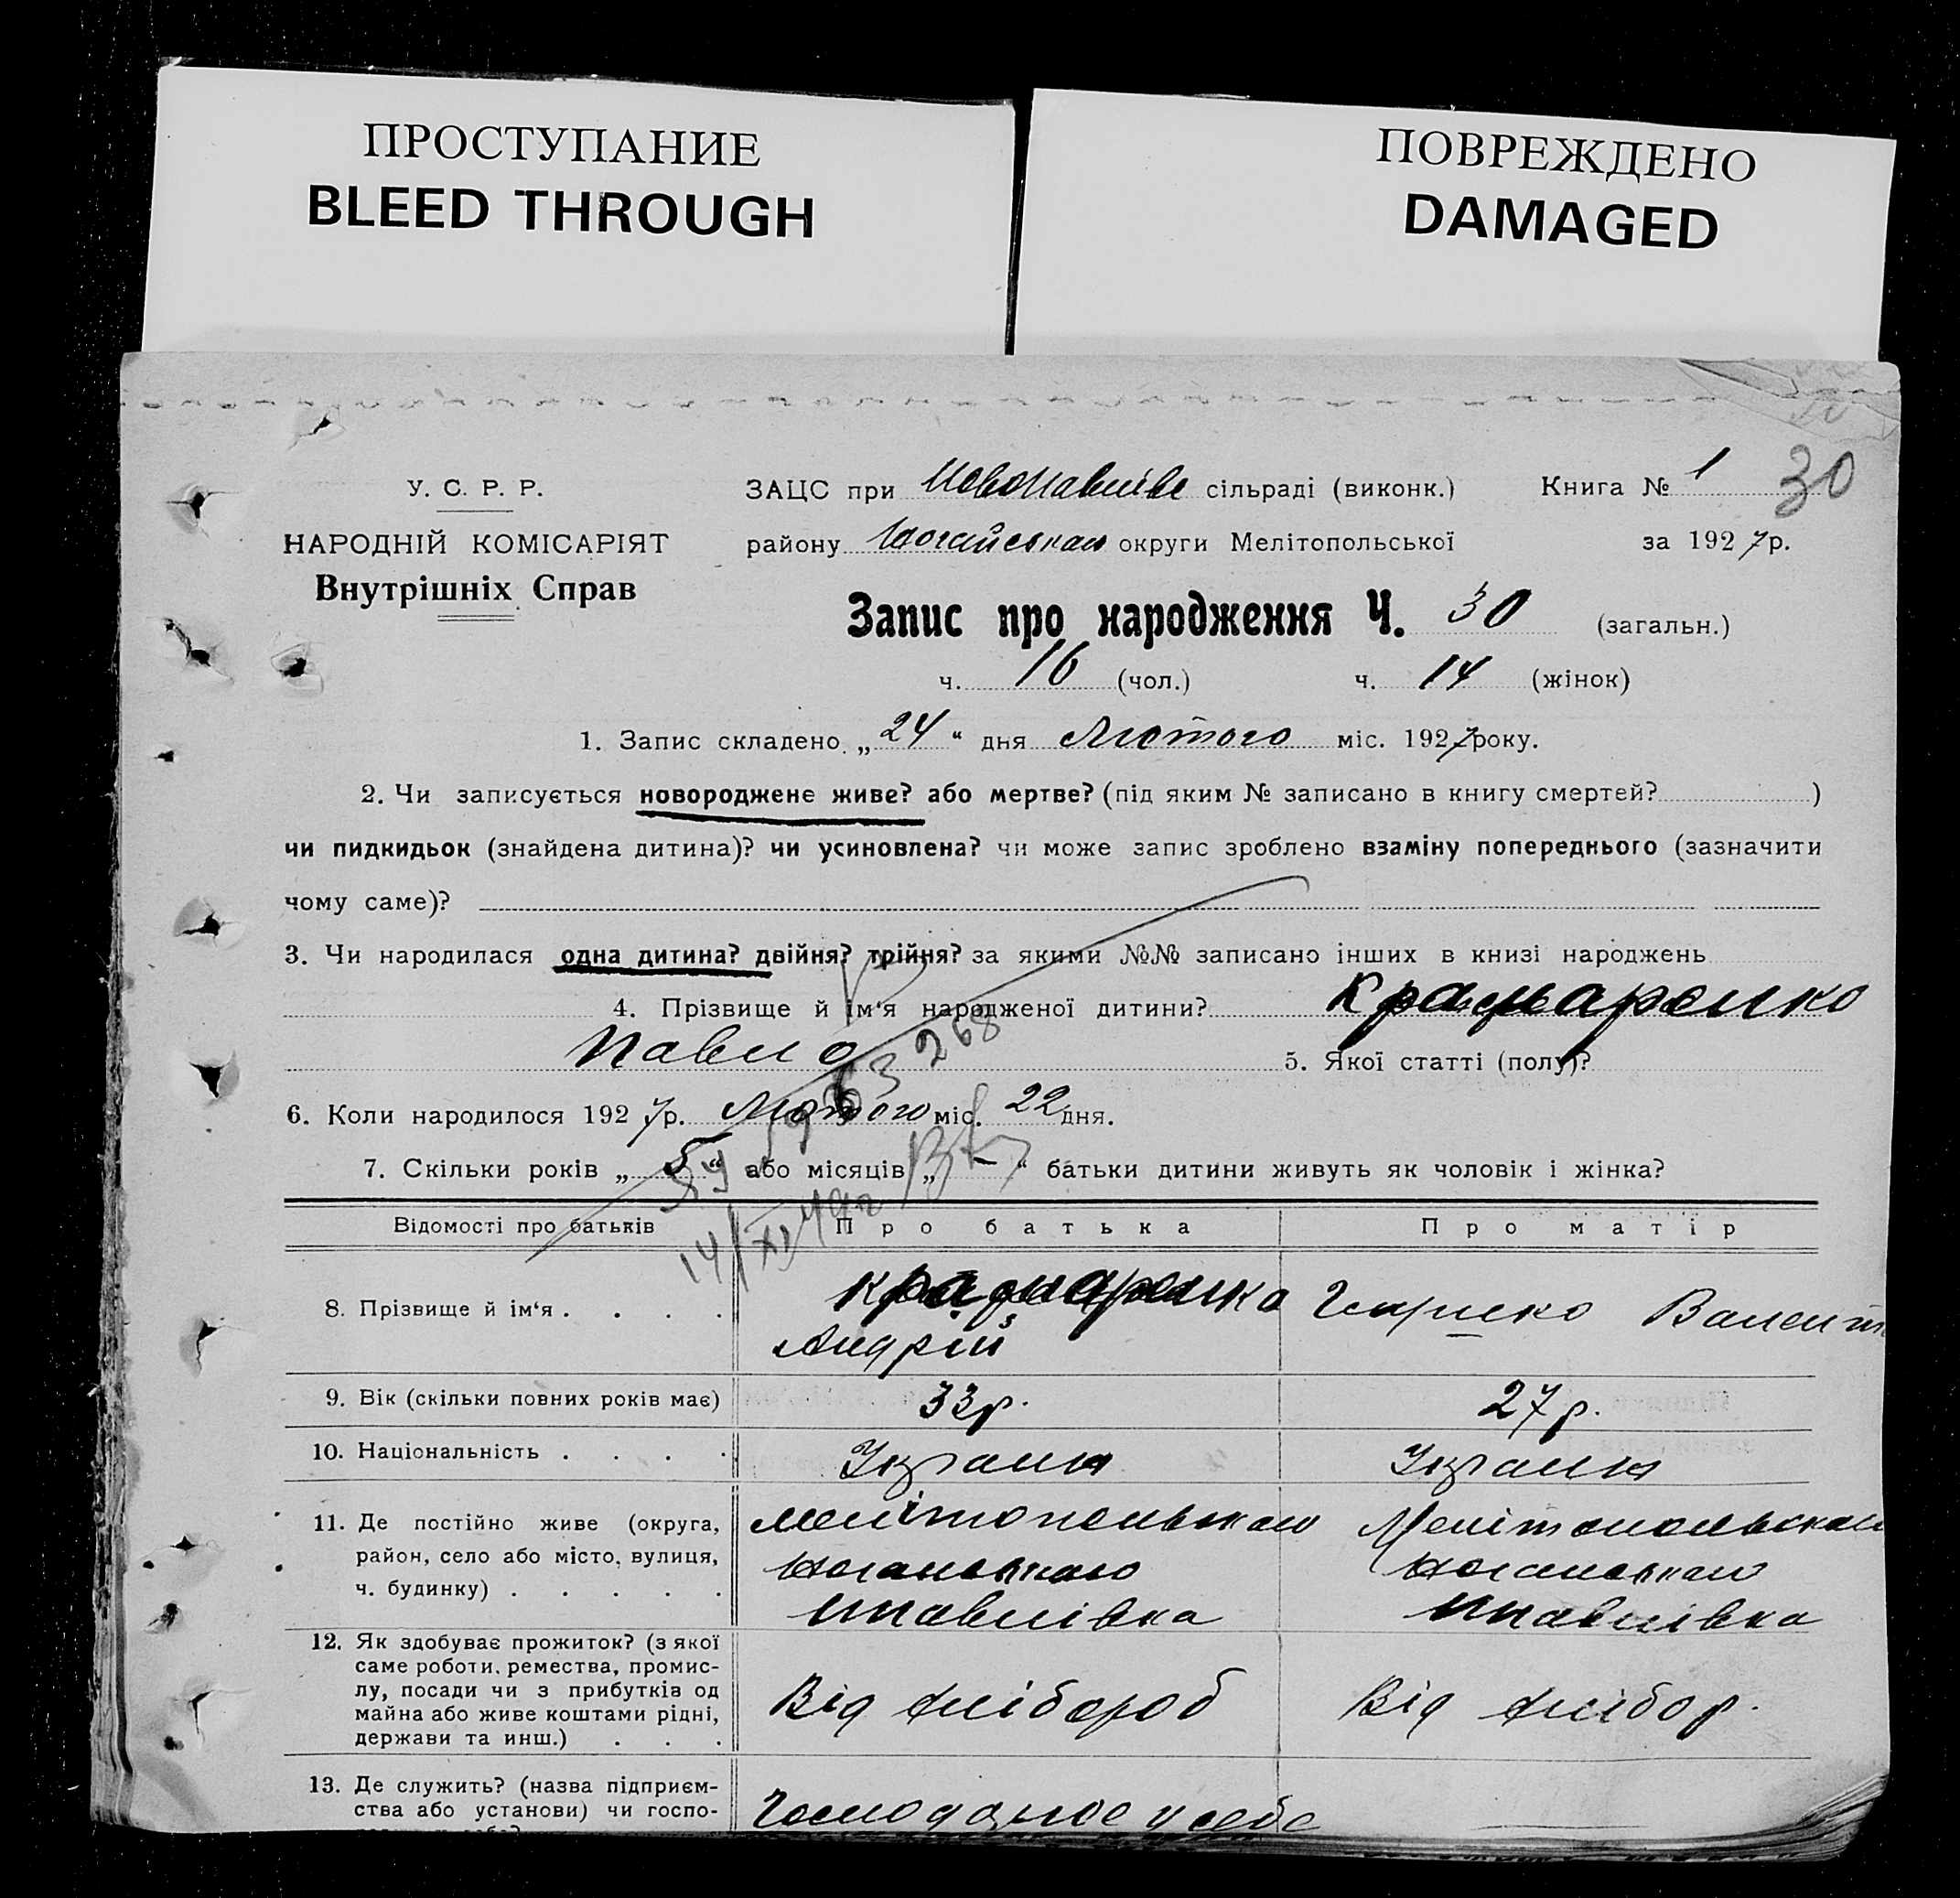 ПРОСТУПАНИЕ
BLEED THROUGH
ПОВРЕЖДЕНО
DAMAGED
У. С. Р. Р.
НАРОДНІЙ КОМІСАРІЯТ
Внутрішніх Справ
ЗАЦС при Новопавлівс сільраді (виконк.)
Книга № 1 30
району Ногайськой округи Мелітопольської
за 1927 р.
Запис про народження Ч. 30 (загальн.)
ч. 16 (чол.) ч. 14 (жінок)
1. Запис складено „24“ дня Лютого міс. 1927 року.
2. Чи записується новороджене живе? або мертве? (під яким № записано в книгу смертей? )
чи пидкидьок (знайдена дитина)? чи усиновлена? чи може запис зроблено взаміну попереднього (зазначити
чому саме)?
3. Чи народилася одна дитина? двійня? трійня? за якими №№ записано інших в книзі народжень
4. Прізвище й ім‘я народженої дитини?
Павло 5. Якої статті (полу)?
6. Коли народилося 1927 р. Лютого міс. 22 дня.
7. Скільки років „5“ або місяців „–“ батьки дитини живуть як чоловік і жінка?
Відомості про батьків Про батька Про матір
8. Прізвище й ім‘я . . . .
Андрій
9. Вік (скільки повних років має) 33 р. 27 р.
10. Національність . . . . Україн Україн
11. Де постійно живе (округа,
район, село або місто, вулиця,
ч. будинку) . . . . .
Нпавлівка Нпавлівка
12. Як здобуває прожиток? (з якої
саме роботи, ремества, промис-
лу, посади чи з прибутків од
майна або живе коштами рідні,
держави та инш.) . . .
Від хлібороб Від хлібор.
13. Де служить? (назва підприєм-
ства або установи) чи госпо-